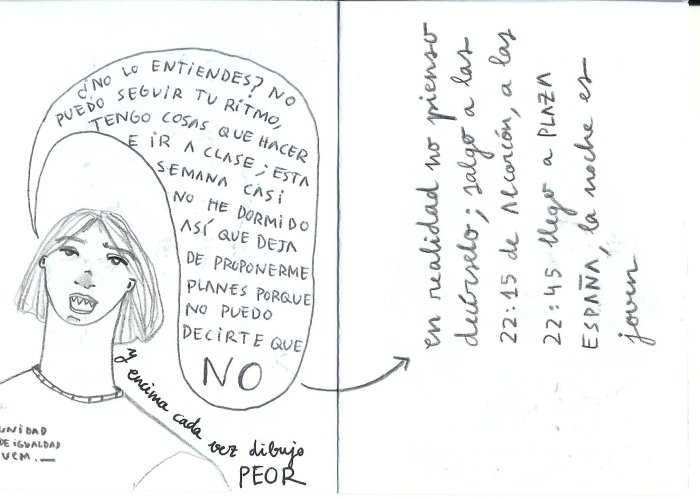 ¿NO LO ENTIENDES? NO
PUEDO SEGUIR TU RITMO,
TENGO COSAS QUE HACER
E IR A CLASE; ESTA
SEMANA CASI
NO HE DORMIDO
ASÍ QUE DEJA
DE PROPONERME
PLANES PORQUE
NO PUEDO
DECIRTE QUE
NO
y encima cada vez dibujo
PEOR
UNIDAD
DE IGUALDAD
UCM.
en realidad no pienso
decírselo; salgo a las
22:15 de Alcorcón, a las
22:45 llego a PLAZA
ESPAÑA, la noche es
joven